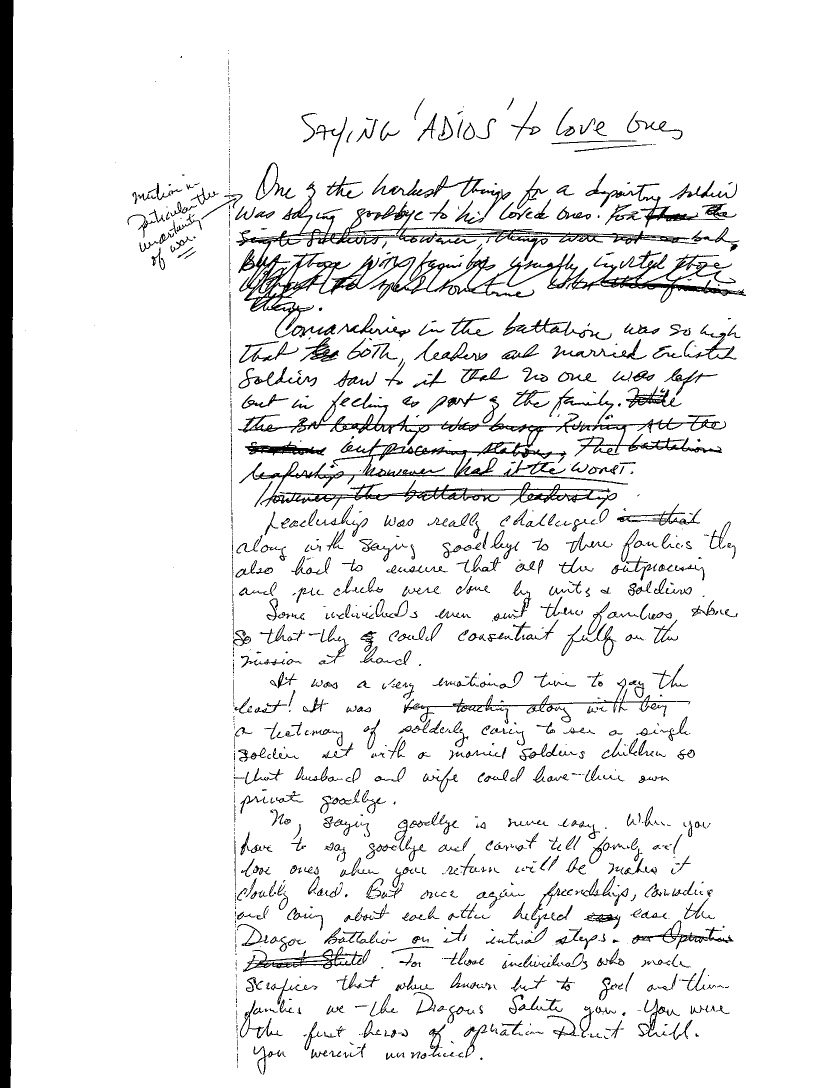 SAYING 'ADIOS' to Love Ones
mention in
particular the
uncertainty
of war.
One of the hardest things for a departing soldier
was saying goodbye to his loved ones. For those the
Single Soldiers, however, things were not so bad,
But those families usually invited those
to spend sometime with
Comaraderies in the battalion was so high
that both, leaders and married Enlisted
Soldiers saw to it that no one was left
out in feeling as part of the family. While
the BN leadership was busy Running All the
Stations outprocessing stations, The battalion
leadership, however had it the worst.
However, the battalion leadership
Leadership was really challenged in that
along with saying goodbye to there families they
also had to ensure that all the outprocessing
and pre checks were done by units & soldiers.
Some individuals even sent there families home
so that they could consentrait fully on the
mission at hand.
It was a very emotional time to say the
least! It was very touching along with being
a testimany of solderly caring to see a single
soldier set with a married soldiers children so
that husband and wife could have their own
private goodbye.
No, saying goodbye is never easy. When you
have to say goodbye and cannot tell family and
love ones when your return will be makes it
doubly hard. But once again freendships,
and caring about each other helped easy ease the
Dragon Battalion on its intial steps. on Operation
Desert Shield. For those individuals who made
scrafices that where known but to god and their
families we - the Dragons Salute you. You were
the first heros of opration Desert Shield.
You weren't unnoticed.